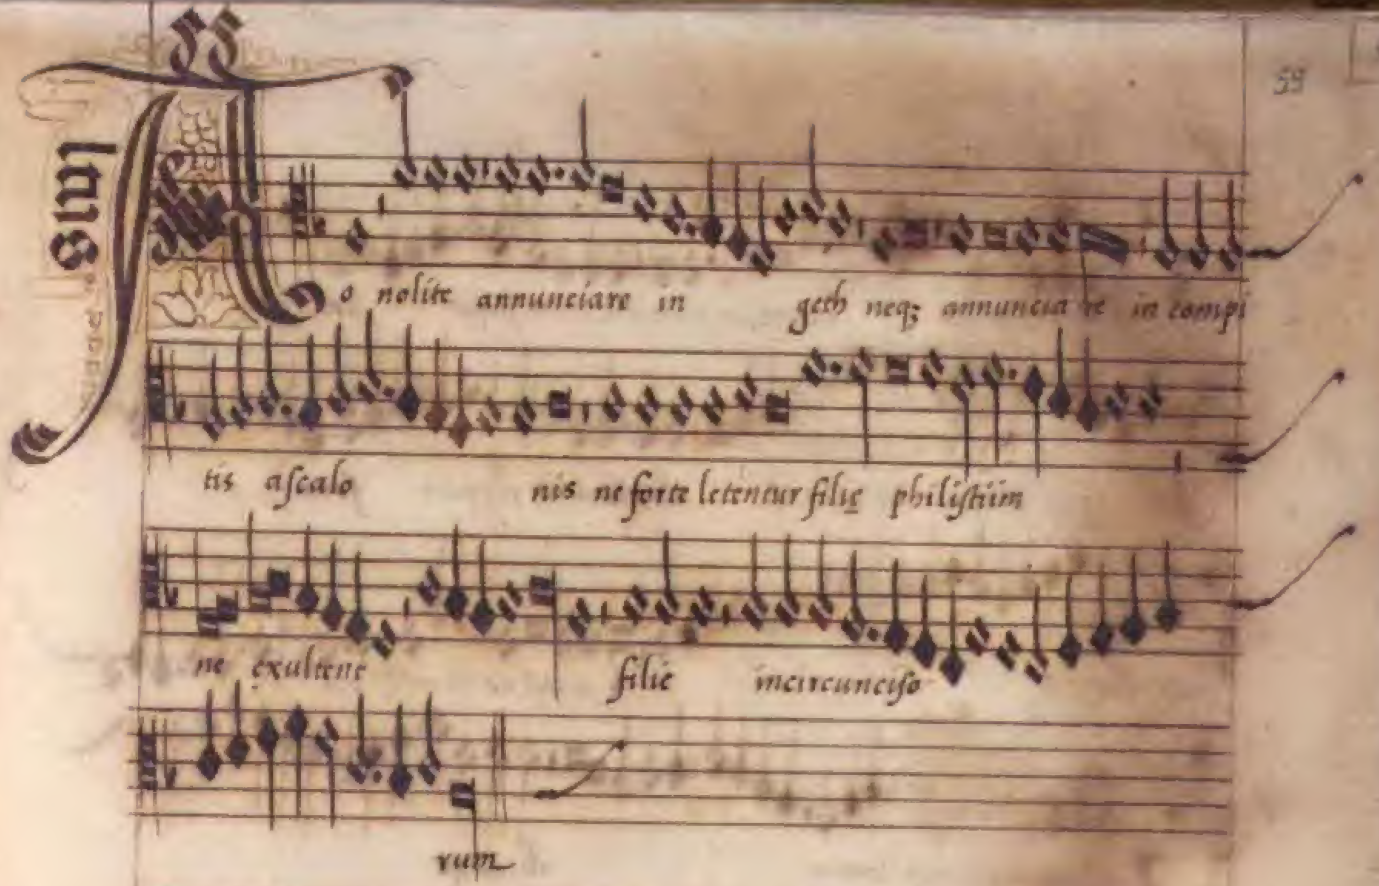 59
o nolite annunciare in geth neqȝ annunciare in compi
tis aſcalo nis ne forte letentur filię philiſtiim
ne exultent filie incircunciſo
rum